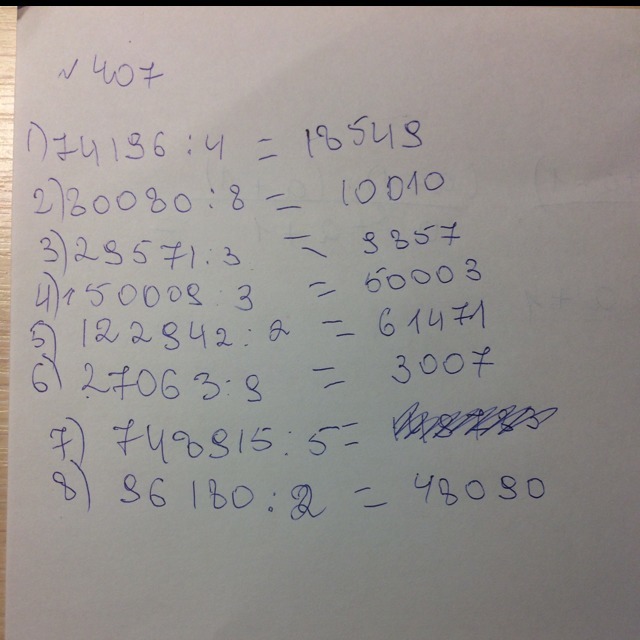 № 407
1) 74196 : 4 = 18549
2) 80080 : 8 = 10010
3) 29571 : 3 = 9857
4) 150009 : 3 = 50003
5) 122942 : 2 = 61471
6) 27063 : 9 = 3007
7) 748915 : 5 =
8) 96180 : 2 = 48090